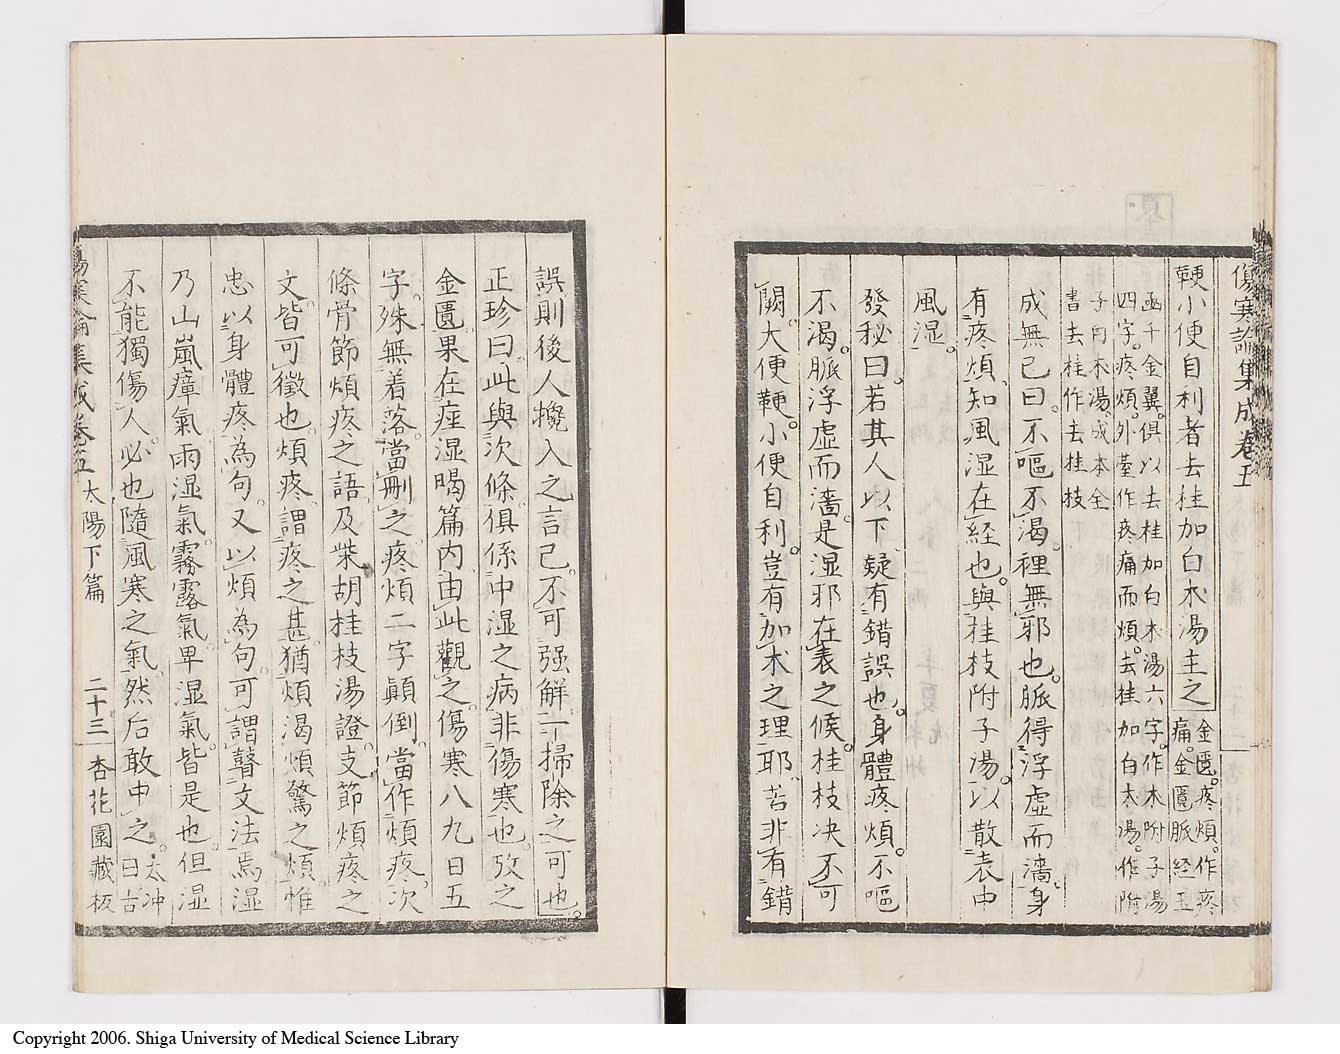 傷寒論集成卷五
鞕小便自利者去桂加白朮湯主之
金匱。疼煩。作疼
痛。金匱脈經玉
函千金翼。俱以去桂加白朮湯六字。作朮附子湯
四字。疼煩。外臺作疼痛而煩。去桂加白朮湯。作附
子白朮湯。成本全
書去桂作去桂枝
成無己曰。不嘔不渴。裡無邪也。脈得浮虛而濇。身
有疼煩。知風湿在經也。與桂枝附子湯。以散表中
風湿。
發秘曰。若其人以下。疑有錯誤也。身體疼煩。不嘔
不渴。脈浮虛而濇。是湿邪在表之候。桂枝決不可
闕。大便鞕。小便自利。豈有加朮之理耶。若非有錯
誤則後人攙入之言已。不可强解。一掃除之可也。
正珍曰。此與次條。俱係中湿之病。非傷寒也。攷之
金匱。果在痙湿暍篇内。由此觀之。傷寒八九日五
字。殊無着落。當刪之。疼煩二字顚倒。當作煩疼。次
條骨節煩疼之語。及柴胡桂枝湯證。支節煩疼之
文。皆可徵也。煩疼。謂疼之甚。猶煩渴煩驚之煩。惟
忠以身體疼為句。又以煩為句。可謂瞽文法焉。湿
乃山嵐瘴氣。雨湿氣。霧露氣。卑湿氣。皆是也。但湿
不能獨傷人。必也隨風寒之氣。然后敢中之。太冲曰古
傷寒論集成卷五 太陽下篇 二十三 杏花園藏板
Copyright 2006. Shiga University of Medical Science Library